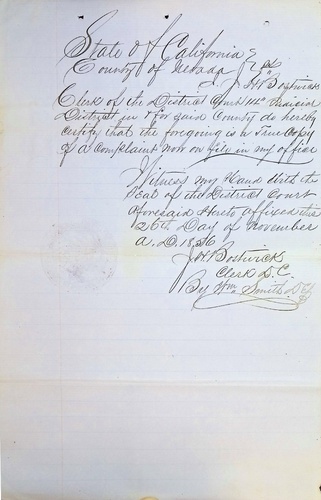 State of California
County of Nevada } SS
I J. H. Bostwick
Clerk of the District Court 14th Judicial
District in & for said County do hereby
certify that the foregoing is a True Copy
of a Complaint now on file in my office
Witness my Hand with the
Seal of the District Court
Aforesaid Hereto affixed this
26th Day of November
A.D. 1856
J. H. Bostwick
Clerk D.C.
By Wm Smith Dpty